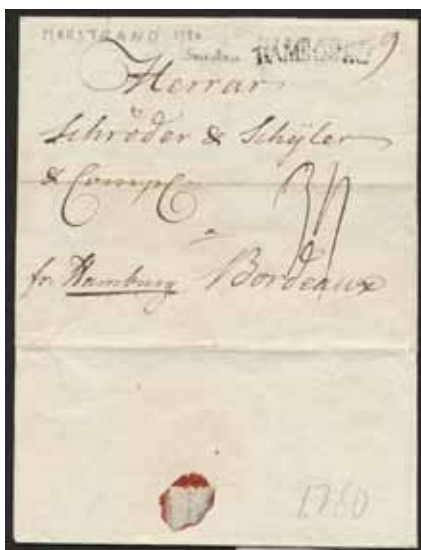 MARSTRAND
Sweden HAMBOURG
Herrar
Schröder & Schÿler
& Comp
a
fr. Hamburg Bordeaux